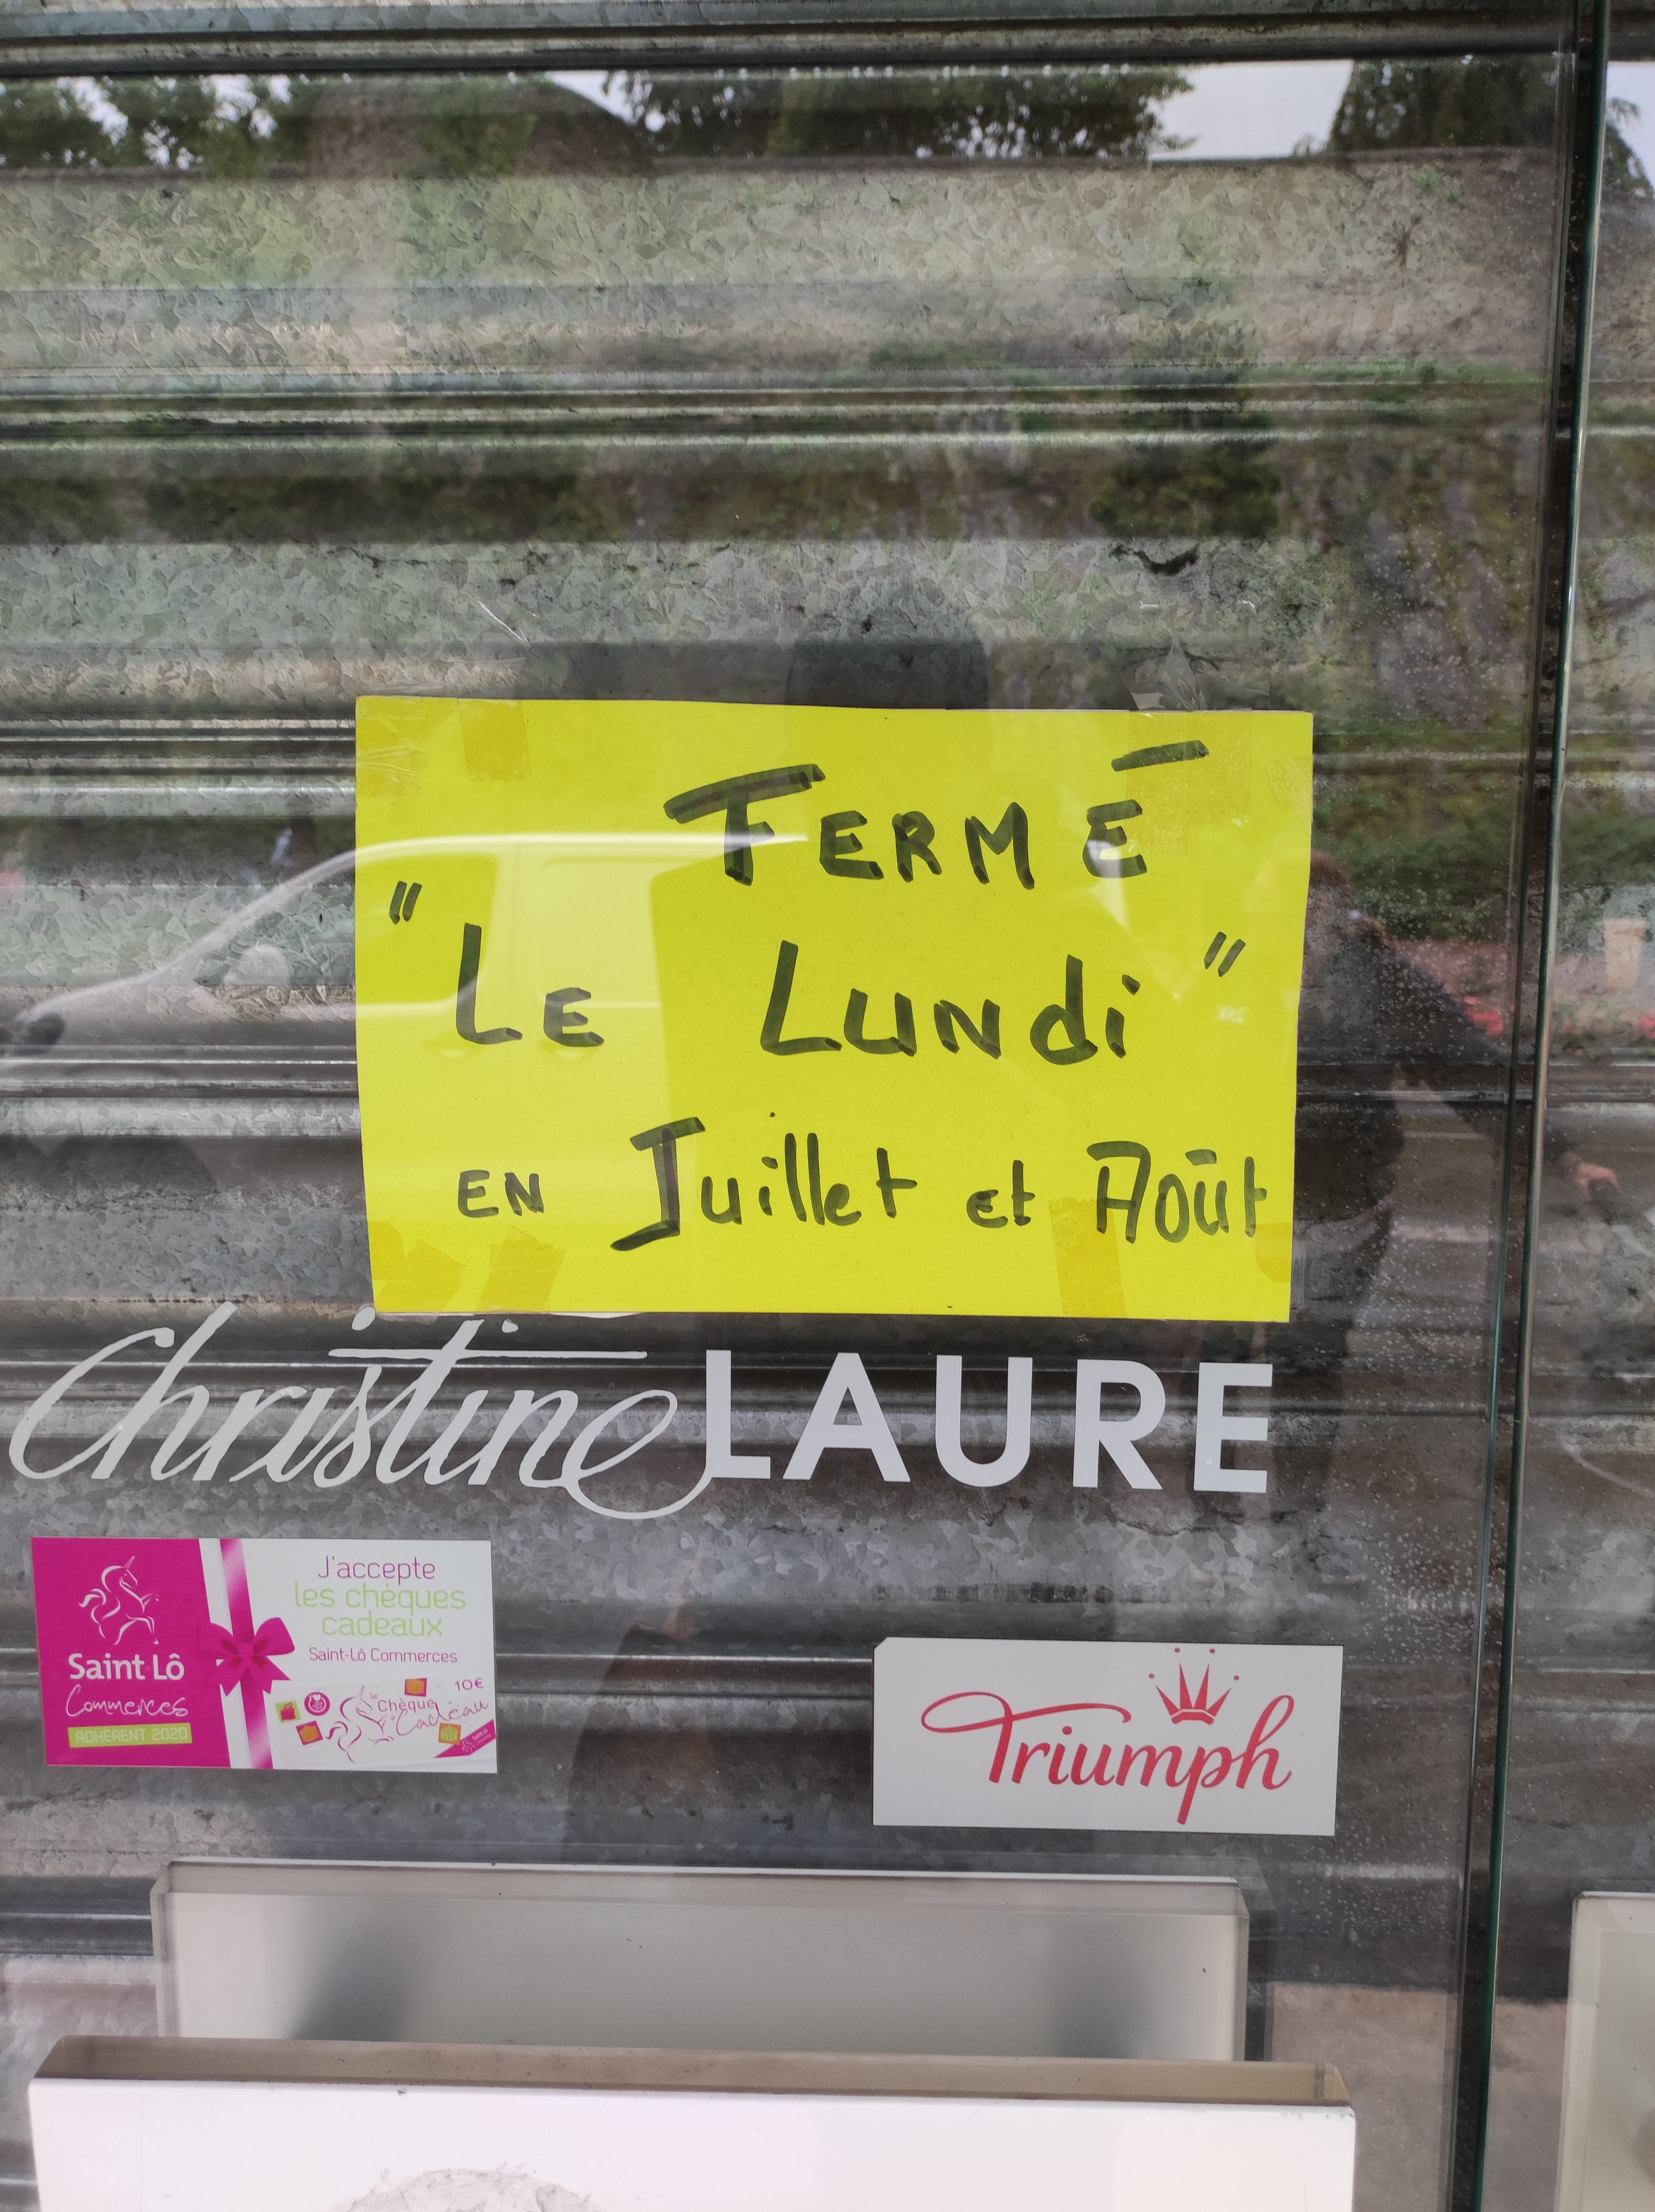 FERMÉ
"LE LUNdi"
EN Juillet et Août
Christine LAURE
J'accepte
les chèques
cadeaux
Saint-Lô Commerces
Saint Lô
Commerces
ADHÉRENT 2020
10€
le Chèque
Cadeau
Triumph